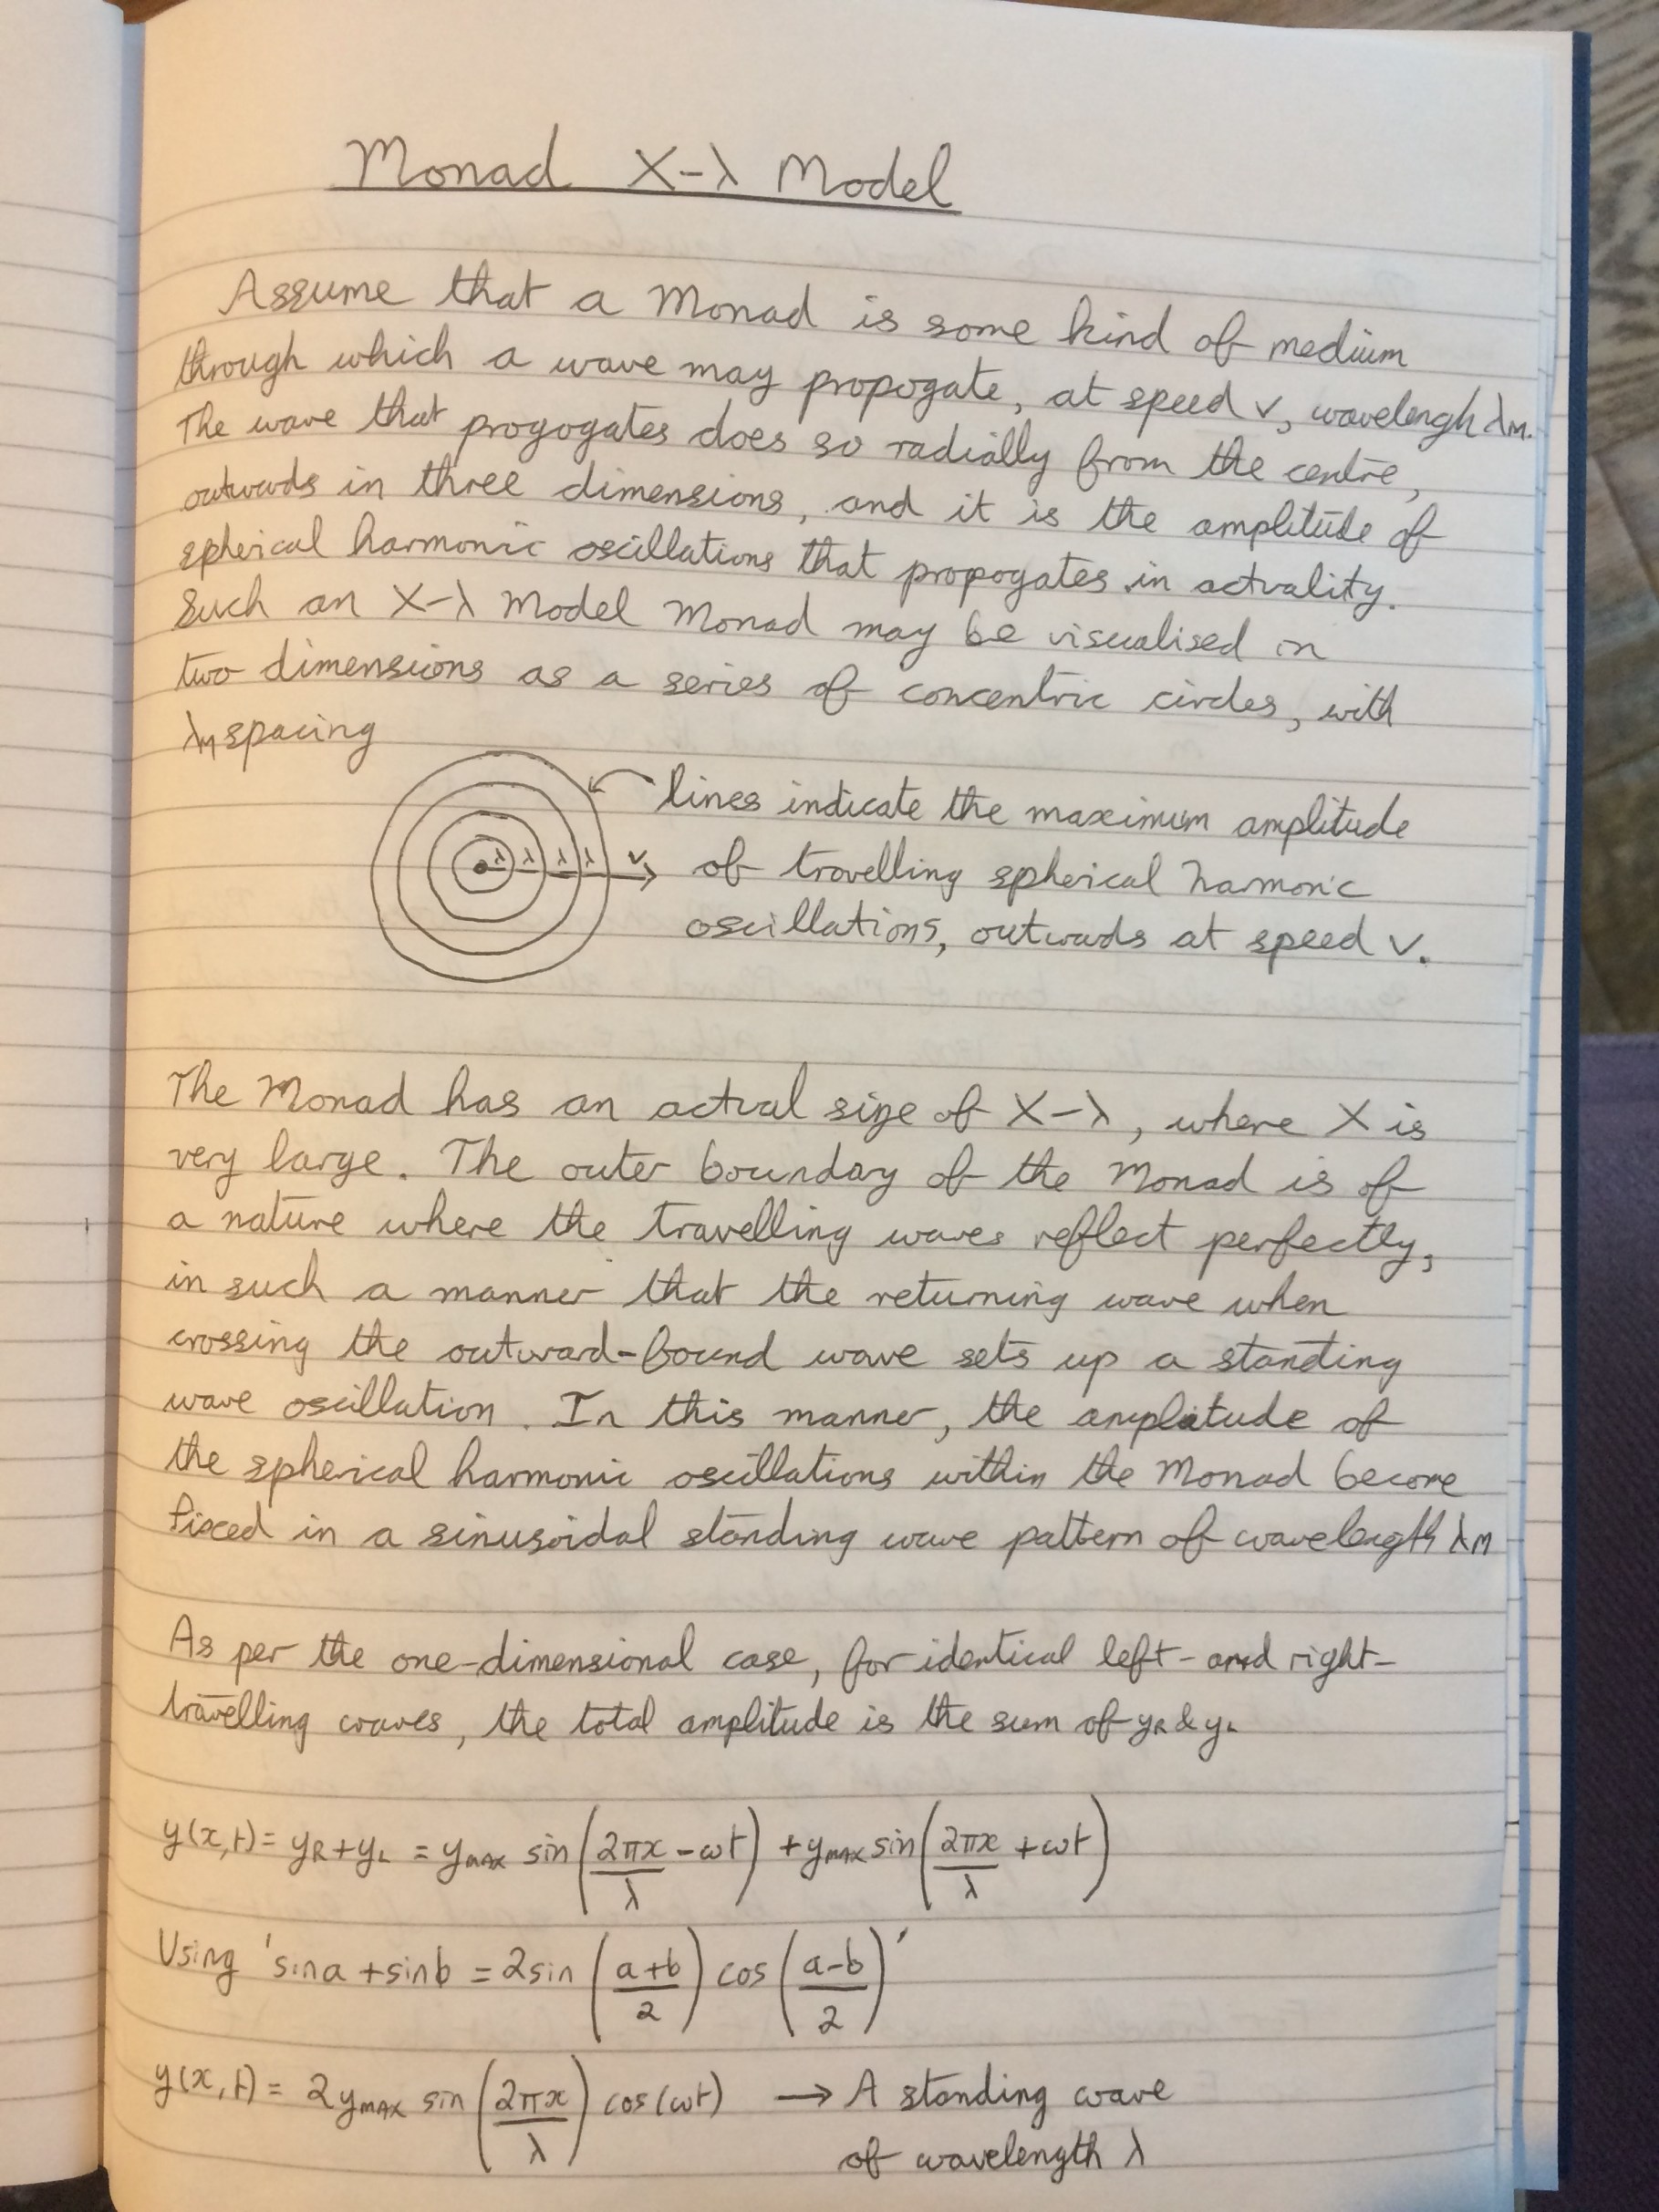 Monad X-λ Model
Assume that a Monad is some kind of medium
through which a wave may propogate, at speed v, wavelengh λM.
The wave that progogates does so radially from the centre,
outwards in three dimensions, and it is the amplitude of
spherical harmonic oscillations that propogates in actuality.
Such an X-λ Model Monad may be visualised in
two dimensions as a series of concentric circles, with
λM spacing
lines indicate the maximum amplitude
λ λ λ λ v of travelling spherical harmonic
oscillations, outwards at speed v.
The Monad has an actual size of X-λ, where X is
very large. The outer boundary of the Monad is of
a nature where the travelling waves reflect perfectly,
in such a manner that the returning wave when
crossing the outward-bound wave sets up a standing
wave oscillation. In this manner, the amplitude of
the spherical harmonic oscillations within the Monad become
fixed in a sinusoidal standing wave pattern of wavelength λM
As per the one-dimensional case, for identical left- and right-
travelling waves, the total amplitude is the sum of yR & yL
y(x,t) = yR + yL = yMAX sin(2πx/λ - ωt) + yMAX sin(2πx/λ + ωt)
Using 'sina + sinb = 2sin(a+b/2) cos(a-b/2)'
y(x,t) = 2yMAX sin(2πx/λ) cos(ωt) → A standing wave
of wavelength λ